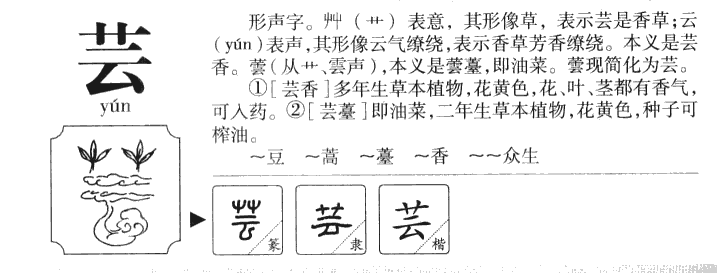 芸
yún
形声字。艸（艹）表意，其形像草，表示芸是香草；云
（yún）表声，其形像云气缭绕，表示香草芳香缭绕。本义是芸
香。蕓（从艹、雲声），本义是蕓薹，即油菜。蕓现简化为芸。
①［芸香］多年生草本植物，花黄色，花、叶、茎都有香气，
可入药。②［芸薹］即油菜，二年生草本植物，花黄色，种子可
榨油。
～豆 ～蒿 ～薹 ～香 ～～众生
芸 篆
芸 隶
芸 楷